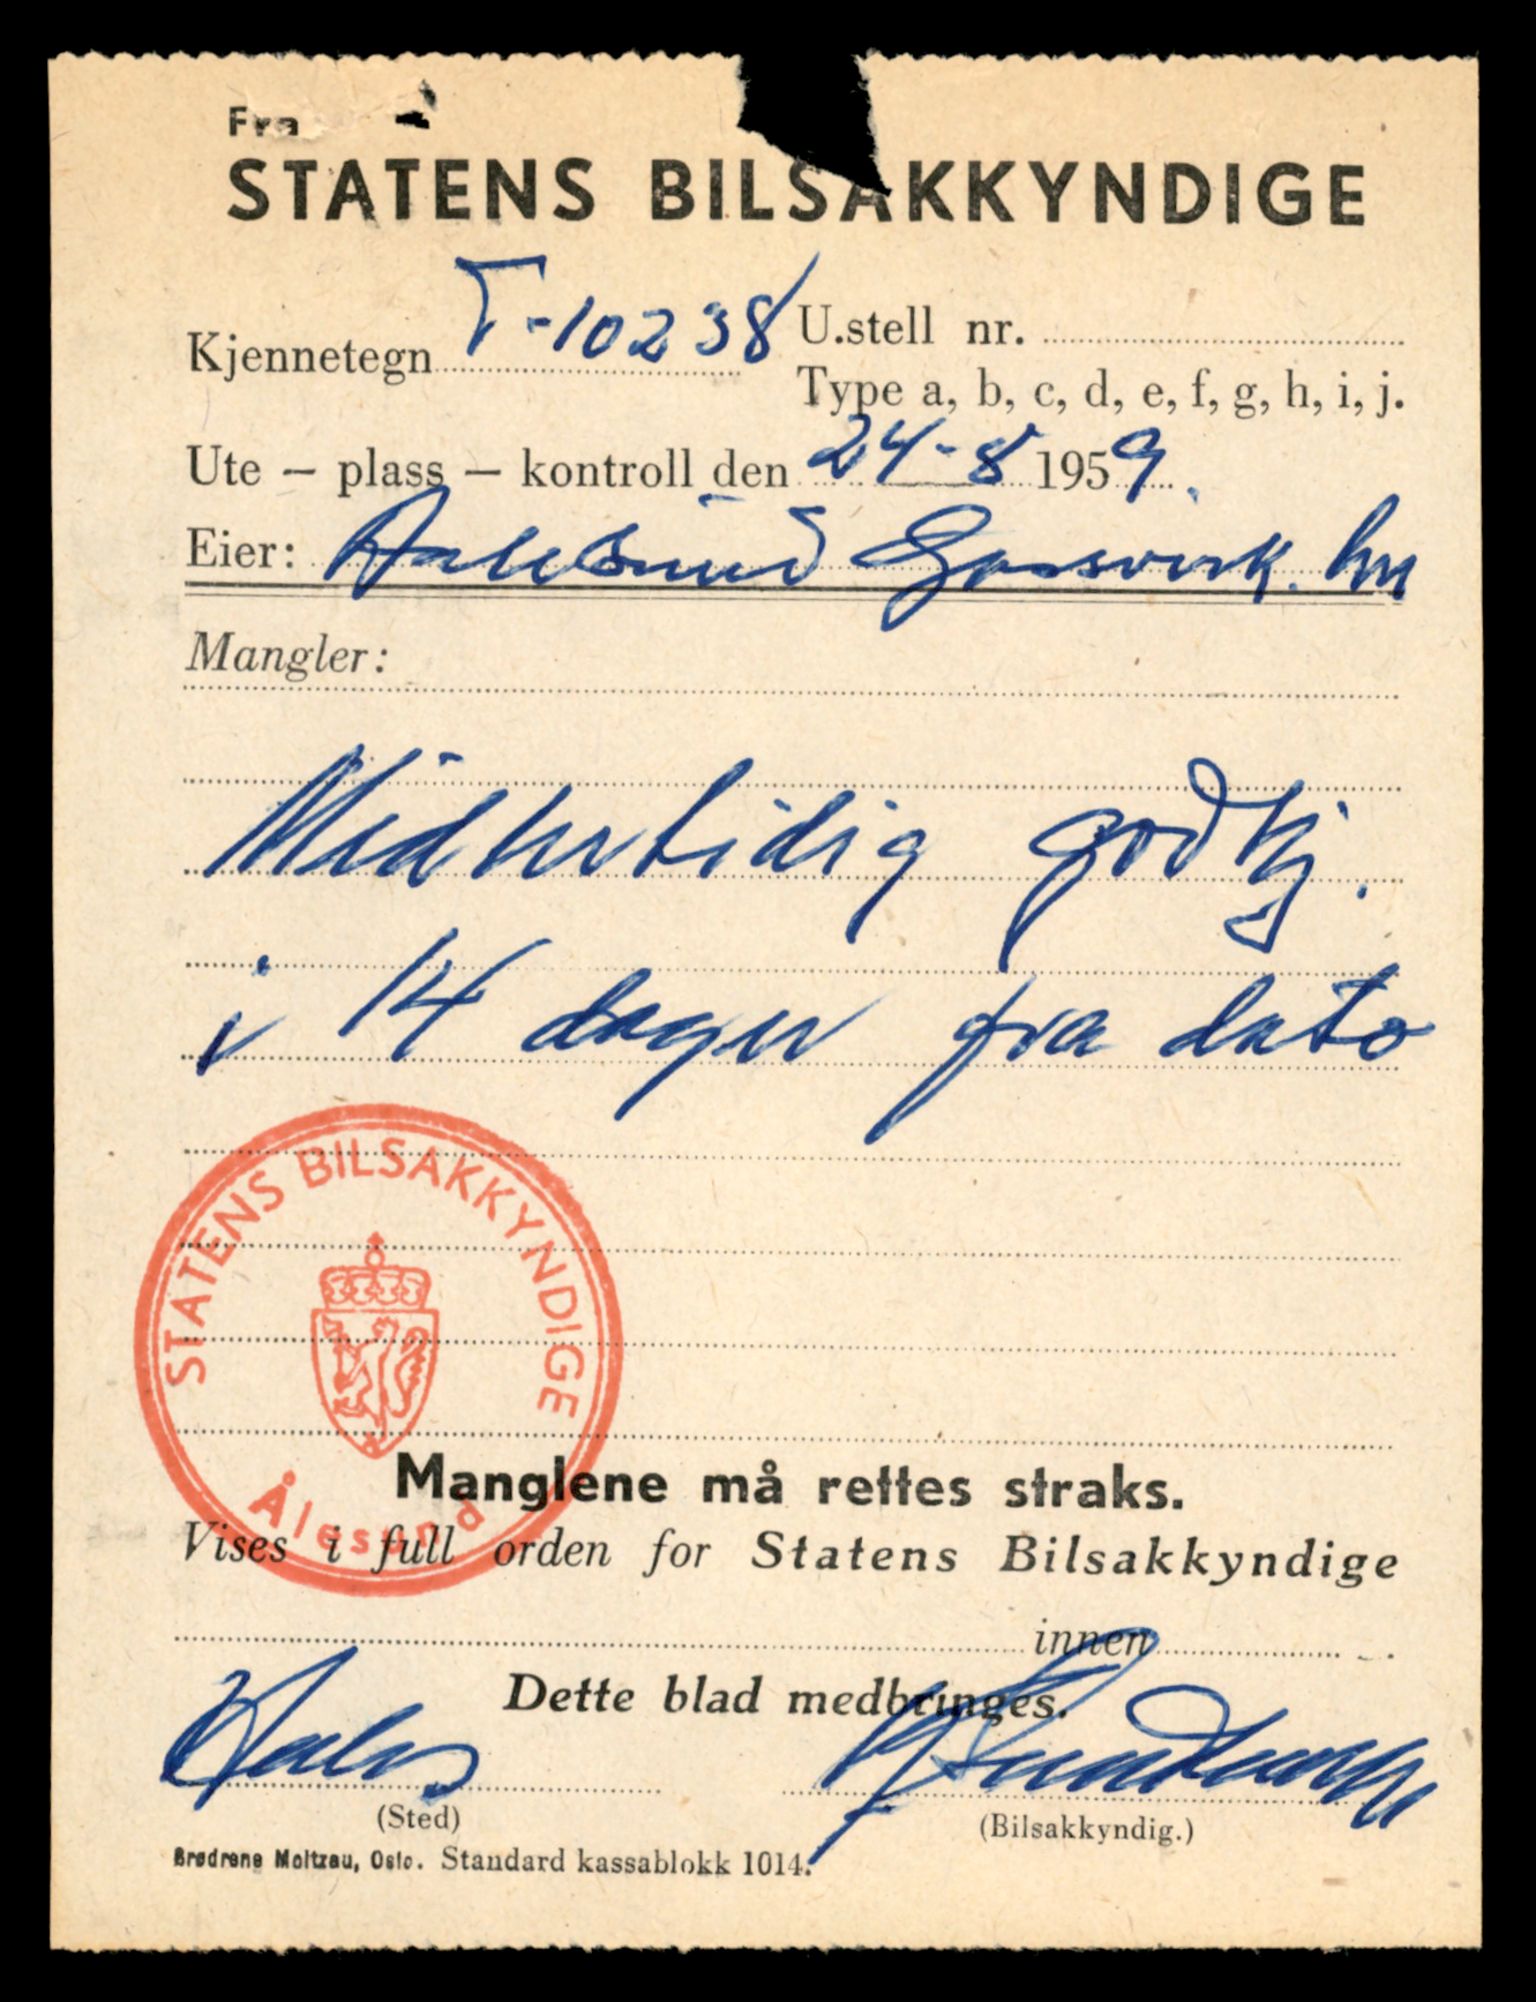 Fra
STATENS BILSAKKYNDIGE
Kjennetegn T-10238 U.stell nr.
Type a, b, c, d, e, f, g, h, i, j.
Ute – plass – kontroll den 24-8 1959.
Eier: Aalesund Gassverk. her
Mangler:
Midlertidig godkj.
i 14 dager fra dato
STATENS BILSAKKYNDIGE
Ålesund
Manglene må rettes straks.
Vises i full orden for Statens Bilsakkyndige
innen
Dette blad medbringes.
(Sted)
(Bilsakkyndig.)
Brødrene Moltzau, Oslo. Standard kassablokk 1014.